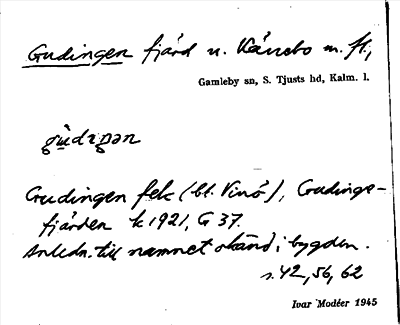 Gudingen fjärd u. Kårebo m. fl.,
Gamleby sn, S. Tjusts hd, Kalm. l.
gùdıŋən
Gudingen fek (bl. Vinö), Gudinge-
fjärden k 1921, G 37.
Anledn. till namnet okänd i bygden.
s. 42, 56, 62
Ivar Modéer 1945